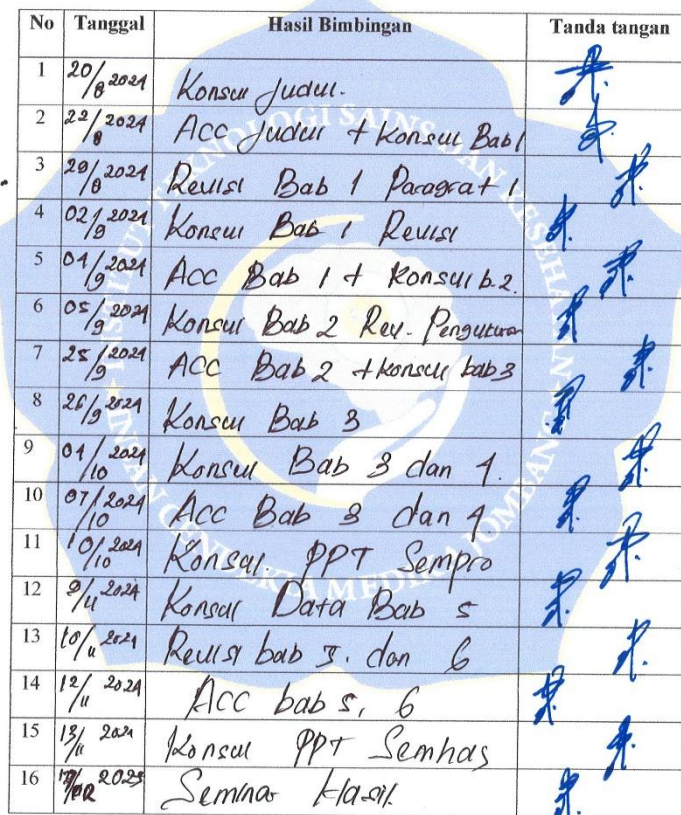 No Tanggal Hasil Bimbingan Tanda tangan
1 20/8 2024 Konsul judul.
2 22/8 2024 ACC judul + Konsul Bab 1
3 29/8 2024 Revisi Bab 1 Paragraf 1
4 02/9 2024 Konsul Bab 1 Revisi
5 04/9 2024 ACC Bab 1 + Konsul b.2.
6 05/9 2024 Konsul Bab 2 Rev. Pengukuran
7 25/9 2024 ACC Bab 2 + konsul bab 3
8 26/9 2024 Konsul Bab 3
9 04/10 2024 Konsul Bab 3 dan 4.
10 07/10 2024 ACC Bab 3 dan 4
11 10/10 2024 Konsul PPT Sempro
12 9/11 2024 Konsul Data Bab 5
13 10/11 2024 Revisi bab 5. dan 6
14 12/11 2024 ACC bab 5, 6
15 13/11 2024 Konsul PPT Semhas
16 2025 Seminar Hasil.
INSTITUT TEKNOLOGI SAINS DAN KESEHATAN
INSAN CENDEKIA MEDIKA JOMBANG